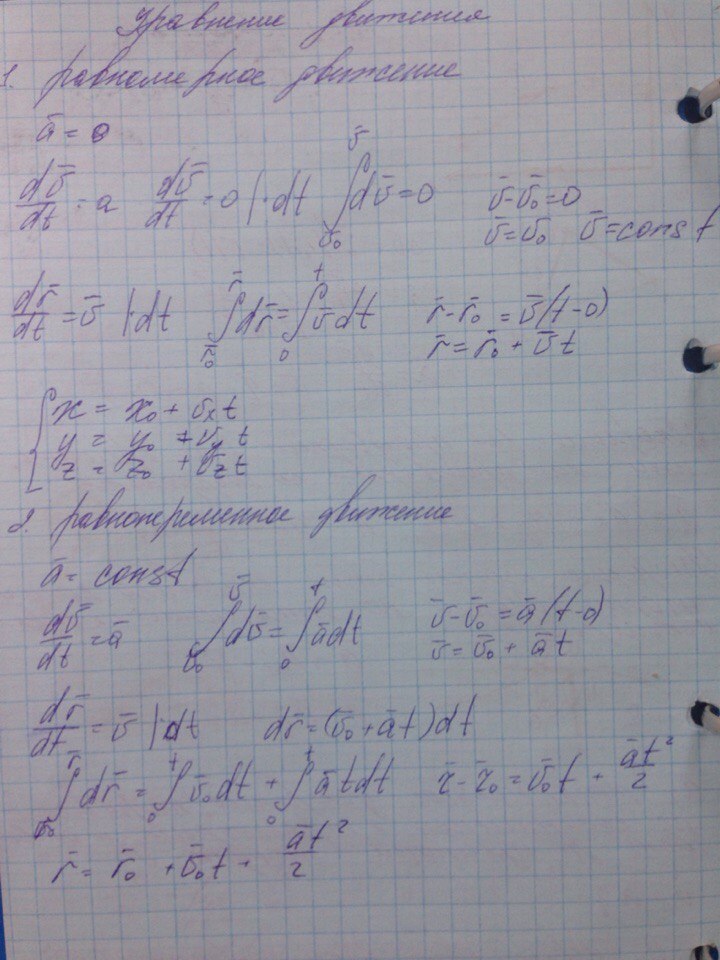 Уравнение движения
1. равномерное движение
a̅ = 0
dv̅/dt = a   dv̅/dt = 0 |·dt   ∫_{v̅₀}^{v̅} dv̅ = 0   v̅ - v̅₀ = 0
v̅ = v̅₀   v̅ = const
dr̅/dt = v̅ |·dt   ∫_{r̅₀}^{r̅} dr̅ = ∫_{0}^{t} v̅ dt   r̅ - r̅₀ = v̅(t-0)
r̅ = r̅₀ + v̅t
{ x = x₀ + vₓt
y = y₀ + v_y t
z = z₀ + v_z t
2. равнопеременное движение
a̅ = const
dv̅/dt = a̅   ∫_{v̅₀}^{v̅} dv̅ = ∫_{0}^{t} a̅dt   v̅ - v̅₀ = a̅(t-0)
v̅ = v̅₀ + a̅t
dr̅/dt = v̅ |·dt   dr̅ = (v̅₀ + a̅t)dt
∫_{r̅₀}^{r̅} dr̅ = ∫_{0}^{t} v̅₀dt + ∫_{0}^{t} a̅tdt   r̅ - r̅₀ = v̅₀t + a̅t²/2
r̅ = r̅₀ + v̅₀t + a̅t²/2